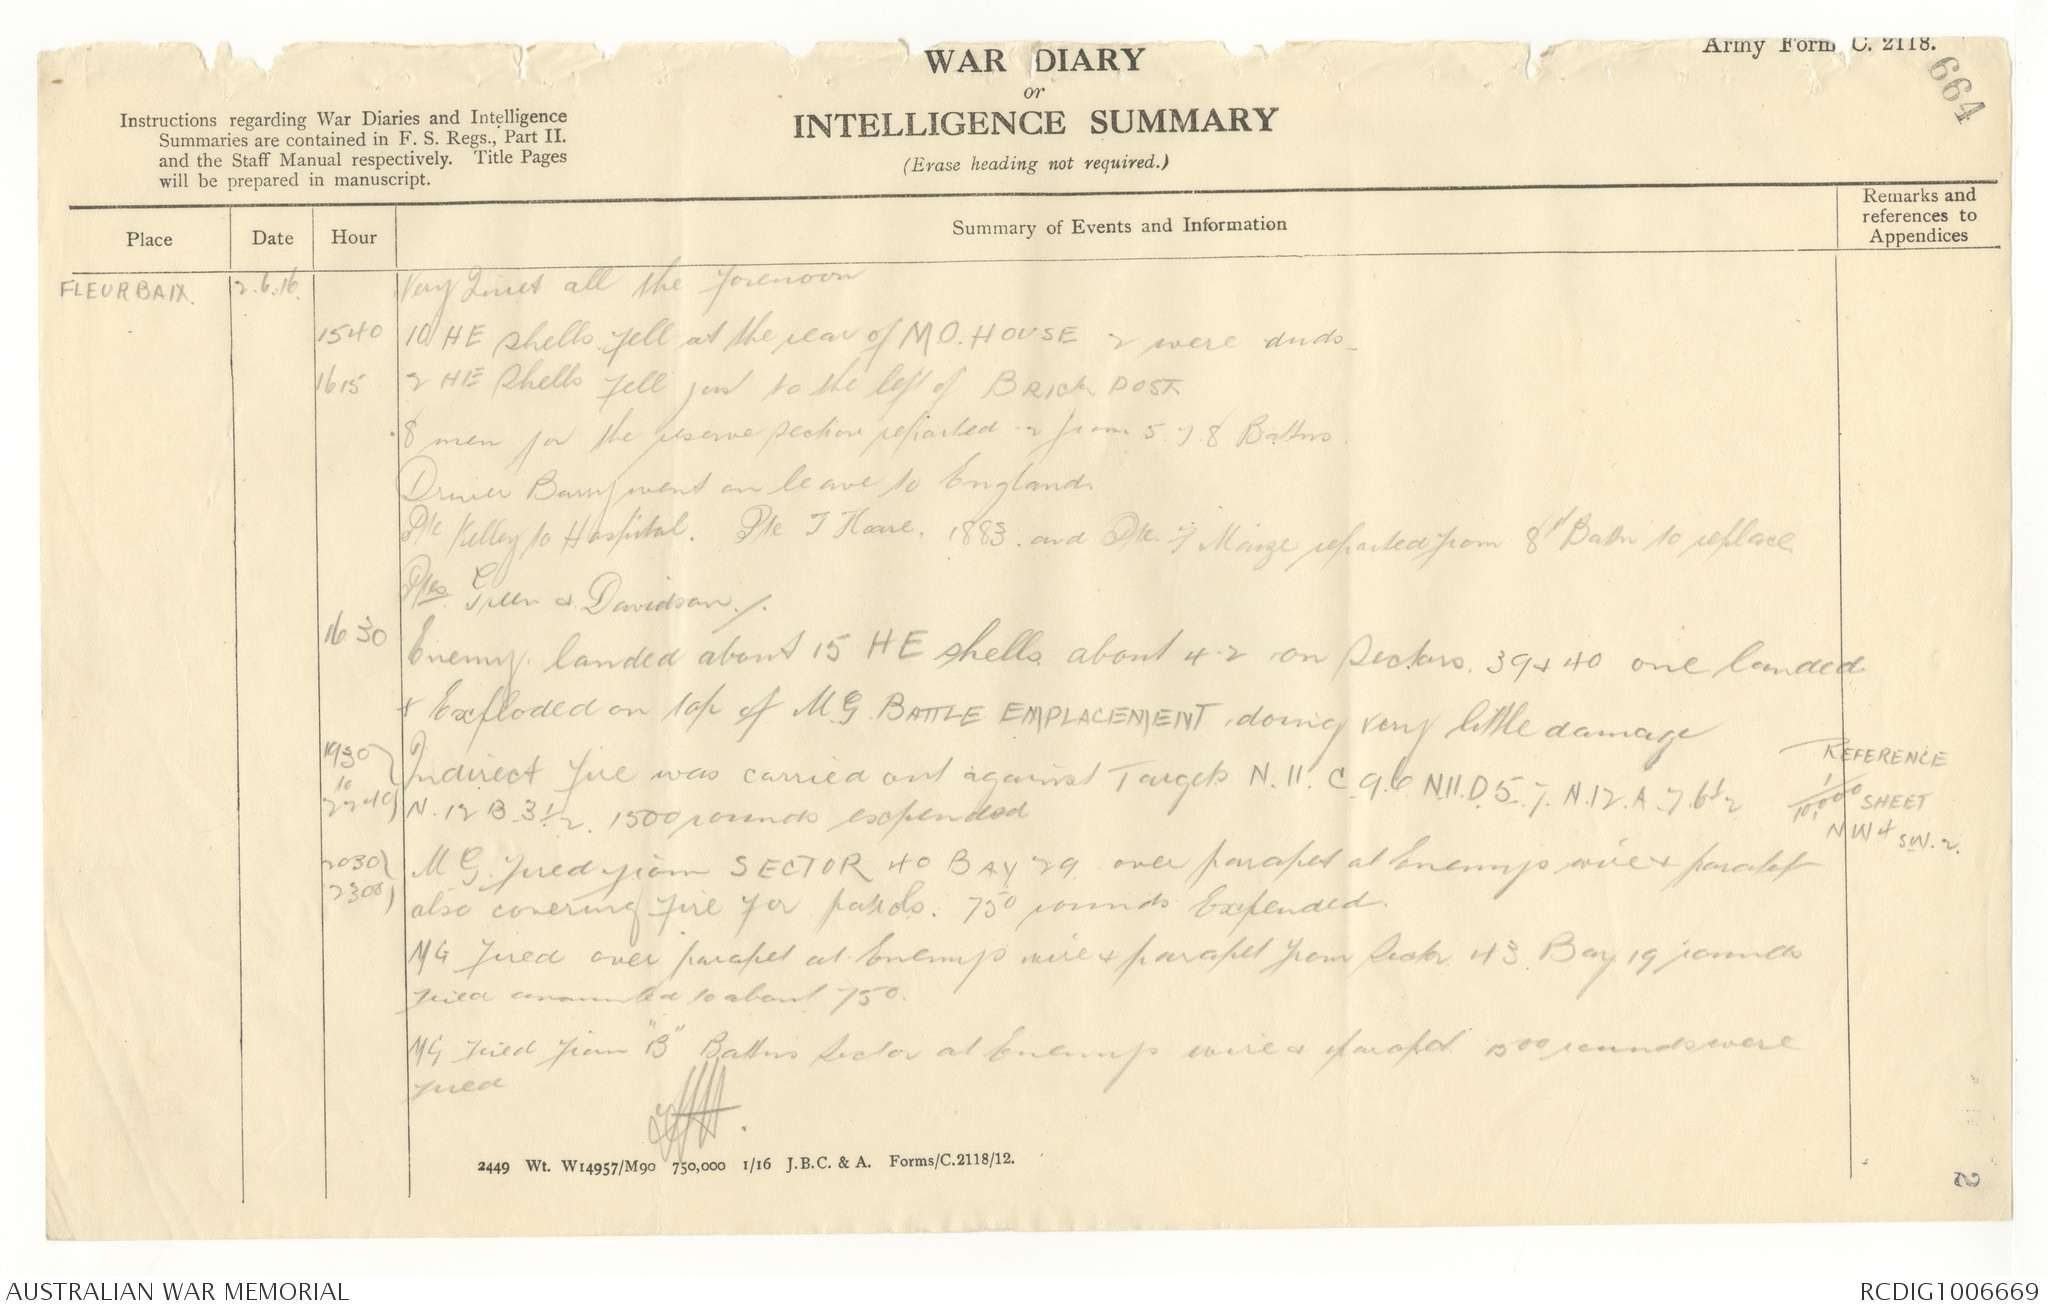 Army Form C. 2118.
WAR DIARY
or
INTELLIGENCE SUMMARY
(Erase heading not required.)
664
Instructions regarding War Diaries and Intelligence
Summaries are contained in F. S. Regs., Part II.
and the Staff Manual respectively. Title Pages
will be prepared in manuscript.
Place Date Hour Summary of Events and Information Remarks and references to Appendices
FLEURBAIX. 2.6.16. Very Quiet all the forenoon
1540 10 HE shells fell at the rear of M.O. HOUSE 2 were duds
1615 2 HE shells fell just to the left of BRICK POST
8 men for the reserve section reported 2 from 5. 7. 8 Battns.
Driver Barry went on leave to England.
Pte Kelley to Hospital. Pte T Hoare. 1883. and Pte. F reported from 8th Battn to replace
Ptes Green & Davidson.
16 30 Enemy landed about 15 HE shells about 4.2 on Sectors. 39 & 40 one landed
& Exploded on top of M.G. BATTLE EMPLACEMENT, doing very little damage
1930 to 2240 Indirect fire was carried out against Targets N. 11. C. 9.6 N.11.D. 5. 7. N.12.A. 7. 6½
N. 12 B. 3½. 1500 rounds expended
REFERENCE
1/10,000 SHEET
NW 4 SW. 2.
2030 2300 MG. fired from SECTOR 40 BAY 29. over parapet at Enemys wire & parapet
also covering fire for patrols. 750 rounds Expended.
MG fired over parapet at Enemys wire & parapet from Sector 43. Bay 19 rounds
fired amounted to about 750.
MG fired from "B" Battns Sector at Enemys wire & parapet 1500 rounds were
fired
2449 Wt. W14957/M90 750,000 1/16 J.B.C. & A. Forms/C.2118/12.
2
AUSTRALIAN WAR MEMORIAL RCDIG1006669